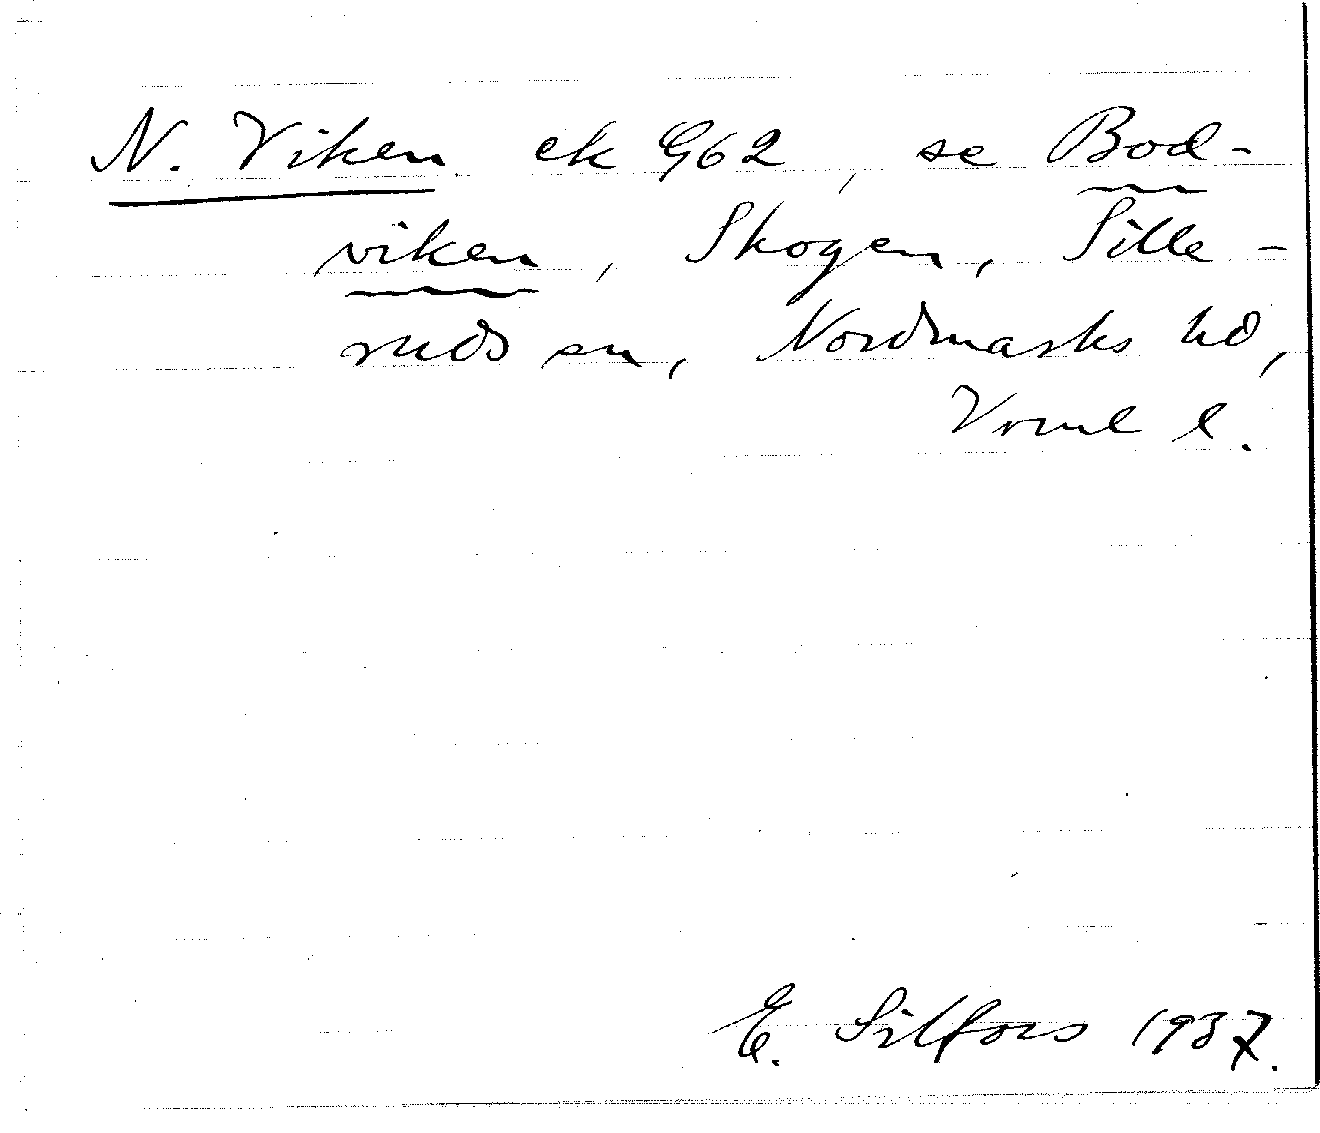 N. Viken ek G62, se Bod-
viken, Skogen, Sille-
ruds sn, Nordmarks hd,
Vrml l.
E. Silfors 1937.